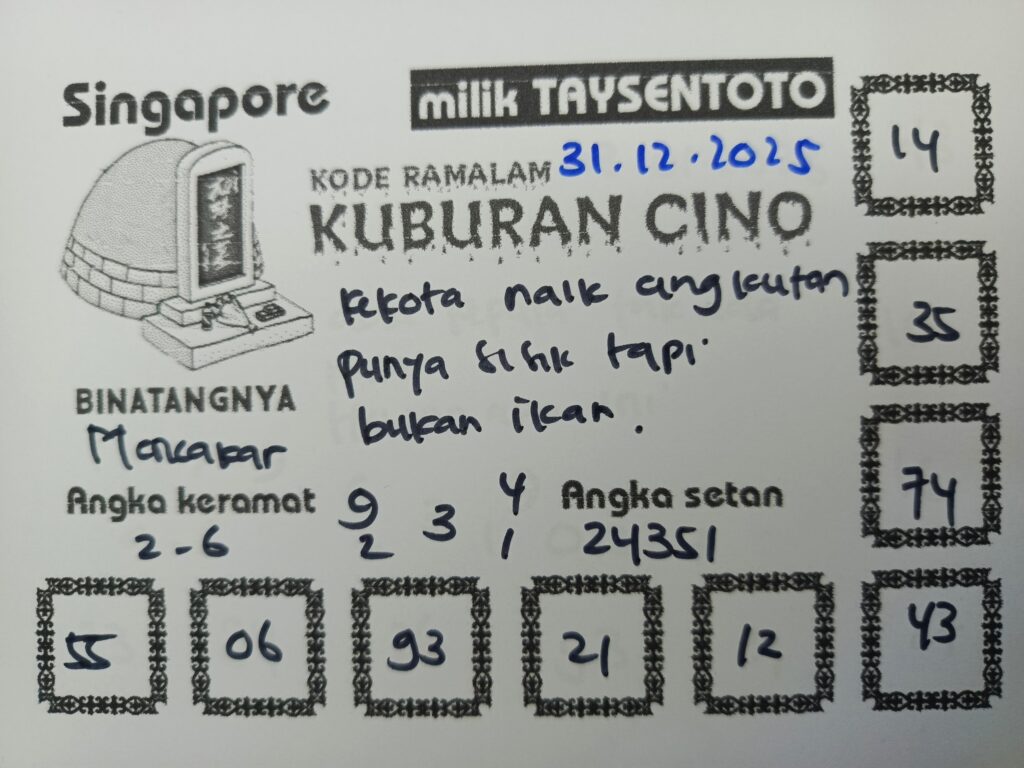 Singapore
milik TAYSENTOTO
KODE RAMALAM 31.12.2025
KUBURAN CINO
kekota naik angkutan
punya sisik tapi
bukan ikan.
BINATANGNYA
Mencakar
Angka keramat
2-6
9 3 4
2 1
Angka setan
24351
14
35
74
43
55 06 93 21 12